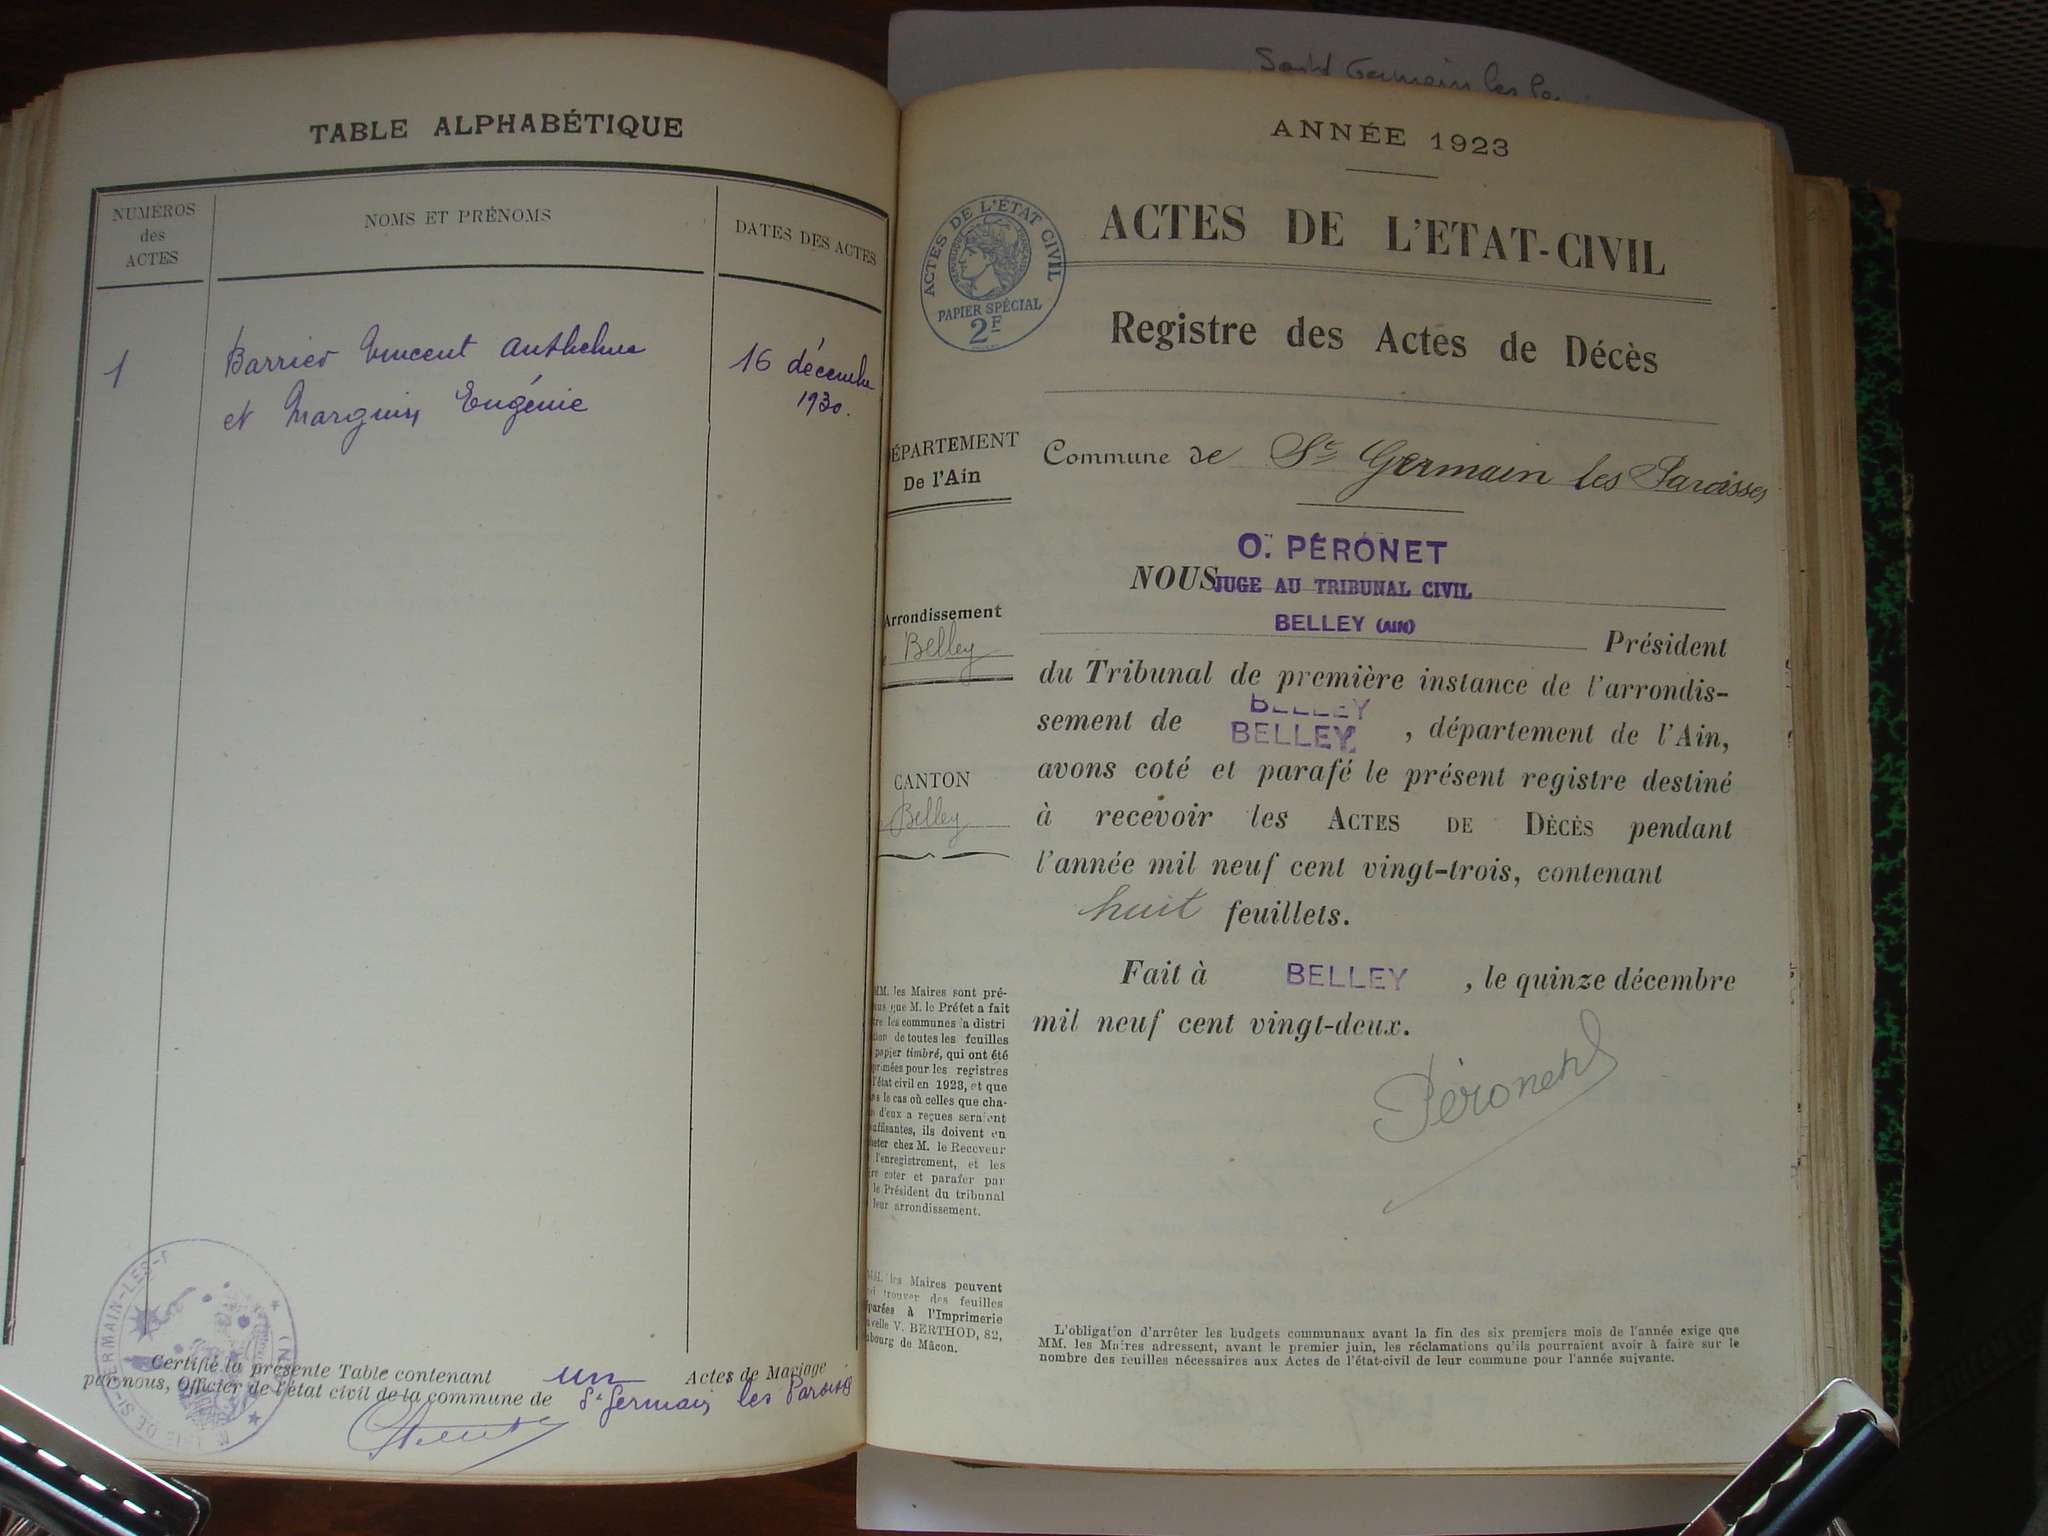 Saint Germain les
TABLE ALPHABÉTIQUE
NUMÉROS
des
ACTES
NOMS ET PRÉNOMS
DATES DES ACTES
1
Barrier Vincent Anthelme
et Marguin Eugénie
16 décembre
1930.
MAIRIE DE ST-GERMAIN-LES-P
Certifié la présente Table contenant un Actes de Mariage
par nous, Officier de l'état civil de la commune de St Germain les Paroisses
ANNÉE 1923
ACTES DE L'ÉTAT CIVIL
PAPIER SPÉCIAL
2F
ACTES DE L'ETAT-CIVIL
Registre des Actes de Décès
ÉPARTEMENT
De l'Ain
Commune de St Germain les Paroisses
Arrondissement
Belley
CANTON
Belley
O. PÉRONET
NOUS JUGE AU TRIBUNAL CIVIL
BELLEY (AIN)
Président
du Tribunal de première instance de l'arrondis-
BELLEY
sement de BELLEY, département de l'Ain,
avons coté et parafé le présent registre destiné
à recevoir les ACTES DE DÉCÈS pendant
l'année mil neuf cent vingt-trois, contenant
huit feuillets.
Fait à BELLEY, le quinze décembre
mil neuf cent vingt-deux.
Péronet
MM. les Maires sont pré-
nus que M. le Préfet a fait
tre les communes la distri
tion de toutes les feuilles
papier timbré, qui ont été
primées pour les registres
l'état civil en 1923, et que
ns le cas où celles que cha-
d'eux a reçues seraient
suffisantes, ils doivent en
heter chez M. le Receveur
l'enregistrement, et les
ire coter et parafer par
le Président du tribunal
leur arrondissement.
MM. les Maires peuvent
trouver des feuilles
parées à l'Imprimerie
uvelle V. BERTHOD, 82,
ubourg de Mâcon.
L'obligation d'arrêter les budgets communaux avant la fin des six premiers mois de l'année exige que
MM. les Maires adressent, avant le premier juin, les réclamations qu'ils pourraient avoir à faire sur le
nombre des feuilles nécessaires aux Actes de l'état-civil de leur commune pour l'année suivante.